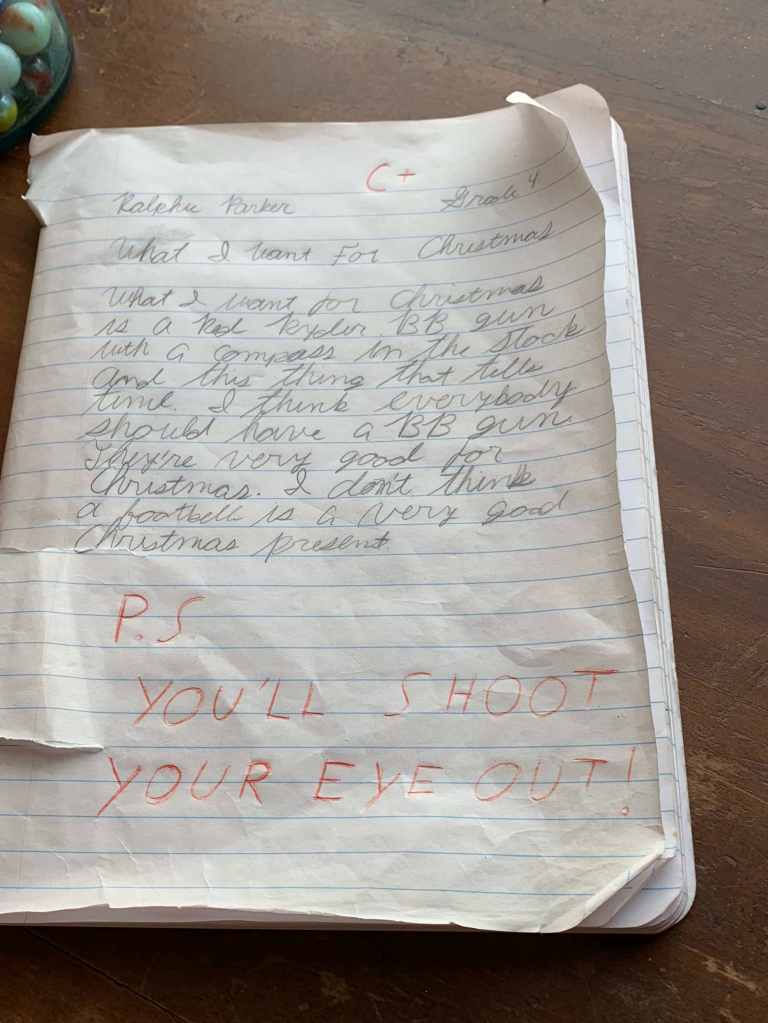 C+
Ralphie Parker Grade 4
What I want For Christmas
What I want for Christmas
is a Red Ryder BB gun
with a compass in the stock
and this thing that tells
time. I think everybody
should have a BB gun.
They're very good for
Christmas. I don't think
a football is a very good
Christmas present
P.S
YOU'LL SHOOT
YOUR EYE OUT!